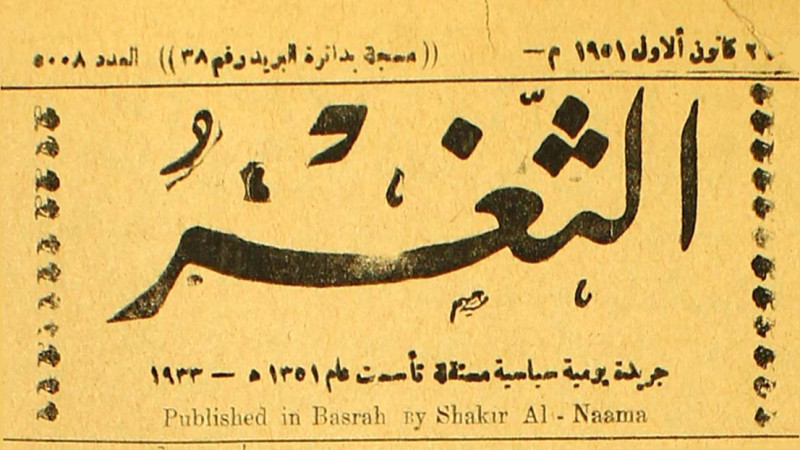 كانون الاول ١٩٥١ م— ((مسجلة بدائرة البريد رقم ٣٨)) العدد ٥٠٠٨
الثَّغْرُ
جريدة يومية سياسية مستقلة تأسست عام ١٣٥١ ه — ١٩٣٣
Published in Basrah By Shakir Al - Naama